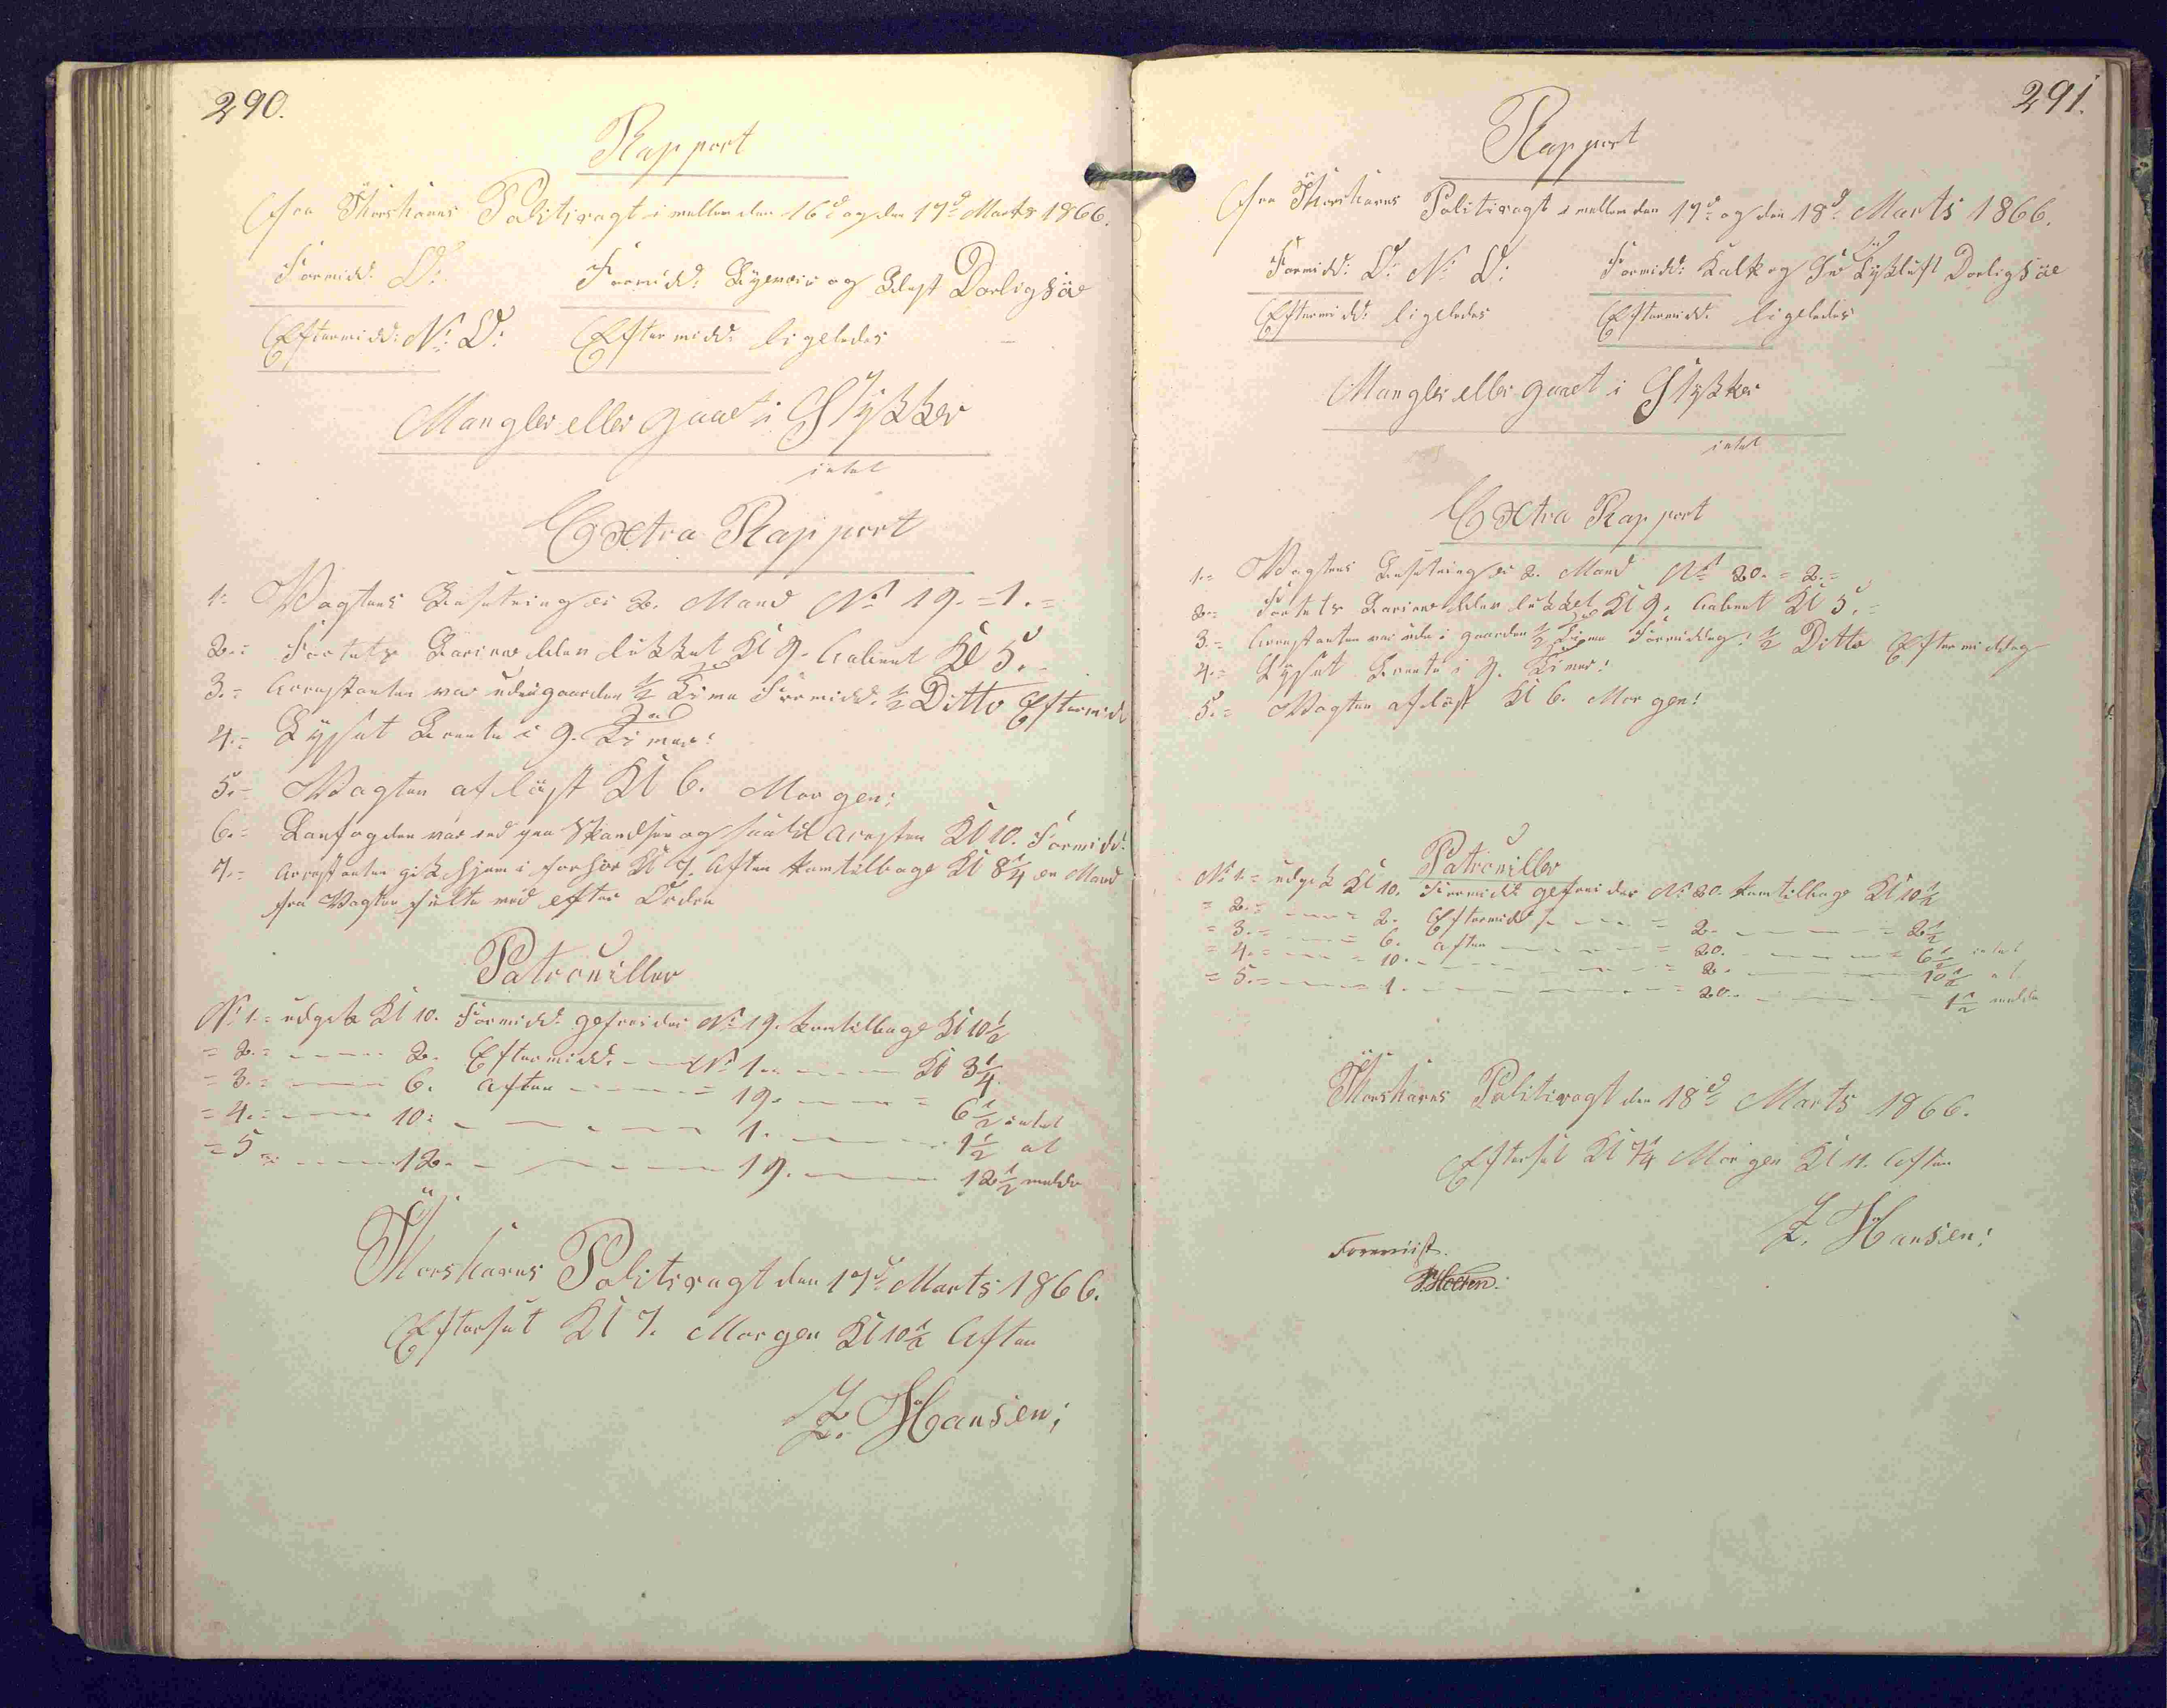 290.
Rapport
fra Thorshavns Politivagt imellem den 16d og den 17d Marts 1866.
Formidd: O: Formidd: og Blæst Daarlig Söe
Eftermidd: N: O: Eftermidd: ligeledes
Mangler eller gaaet i Stykker
intet
Extra Rapport
1. Vagtens Besætning er 2. Mand No 19. = 1. =
2. = Fortets Barriere blev lukket Kl 9. aabent Kl 5. =
3. = Arrestanten var ude i gaarden ½ Time Formidd: ½ Ditto Eftermidd
4. = Lyset Brente i 9. Timer!
5. = Vagten aflöst Kl 6. Morgen;
6. = Landfogden var ind paa Skandsen og saae til Aresten Kl 10. Formidd:
7. = Arrestanten gik hjem i forhör Kl 7. Aften kom tilbage Kl 8¼ en Mand
fra Vagten fulte med efter Orden
Patrouiller
No 1. = udgik Kl 10. Formidd: gefreider No 19. kom tilbage Kl 10½
= 2. = 2. Eftermidd: No 1. Kl 3¼
= 3. = 6. Aften = 19. = 6½ intet
= 4. = 10: 1. 1½ at
= 5 = 12. 19. 12½ melde
Thorshavns Politivagt den 17d Marts 1866.
Eftersat Kl 7. Morgen Kl 10½ Aften
Z. Hansen;
291.
Rapport
fra Thorshavns Politivagt imellem den 17d og den 18d Marts 1866.
Formidd: O: N: O: Formidd: Kulk og Daarlig Söe
Eftermidd: ligeledes Eftermidd: ligeledes
Mangler eller gaaet i Stykker
intet
Extra Rapport
1. = Vagtens Besætning er 2. Mand No 20. = 2. =
2. = Fortets Barriere blev lukket Kl 9. aabent Kl 5. =
3. = Arrestanten var ude i gaarden ½ Time Formiddag! ½ Ditto Eftermiddag
4. = Lyset Brente i 9. Timer!
5. = Vagten aflöst Kl 6. Morgen!
Patrouiller
No 1. = udgik Kl 10. Formidd: gefreider No 20. kom tilbage Kl 10½
= 2. = 2. Eftermidd = 2. = 2½
= 3. = 6. Aften = 20. = 6½ intet
= 4. = 10. = 2. 10½ at
= 5. = 1. = 20. = 1½ melde
Thorshavns Politivagt den 18d Marts 1866.
Eftersat Kl 7¼ Morgen Kl 11. Aften
Z. Hansen;
Foreviist.